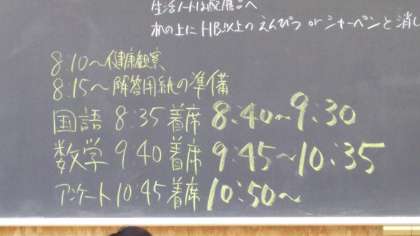 生活ノートは配膳台へ
机の上にHB以上のえんぴつ orシャーペンと消し
8:10～健康観察
8:15～解答用紙の準備
国語 8:35 着席 8:40～9:30
数学 9:40 着席 9:45～10:35
アンケート 10:45 着席 10:50～